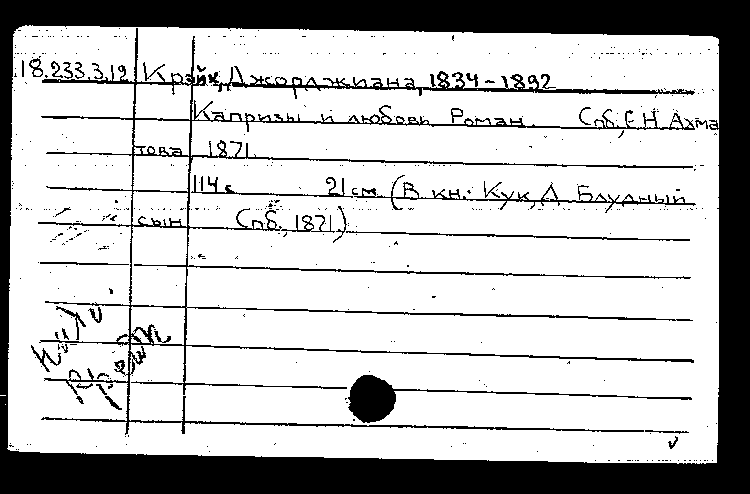 18.233.3.12 Крэйк, Джорджиана, 1834-1892
Капризы и любовь. Роман. Спб., С.Н. Ахма
това, 1871.
114 с 21 см. (В кн.: Кук, Д. Блудный
сын. Спб., 1871.)